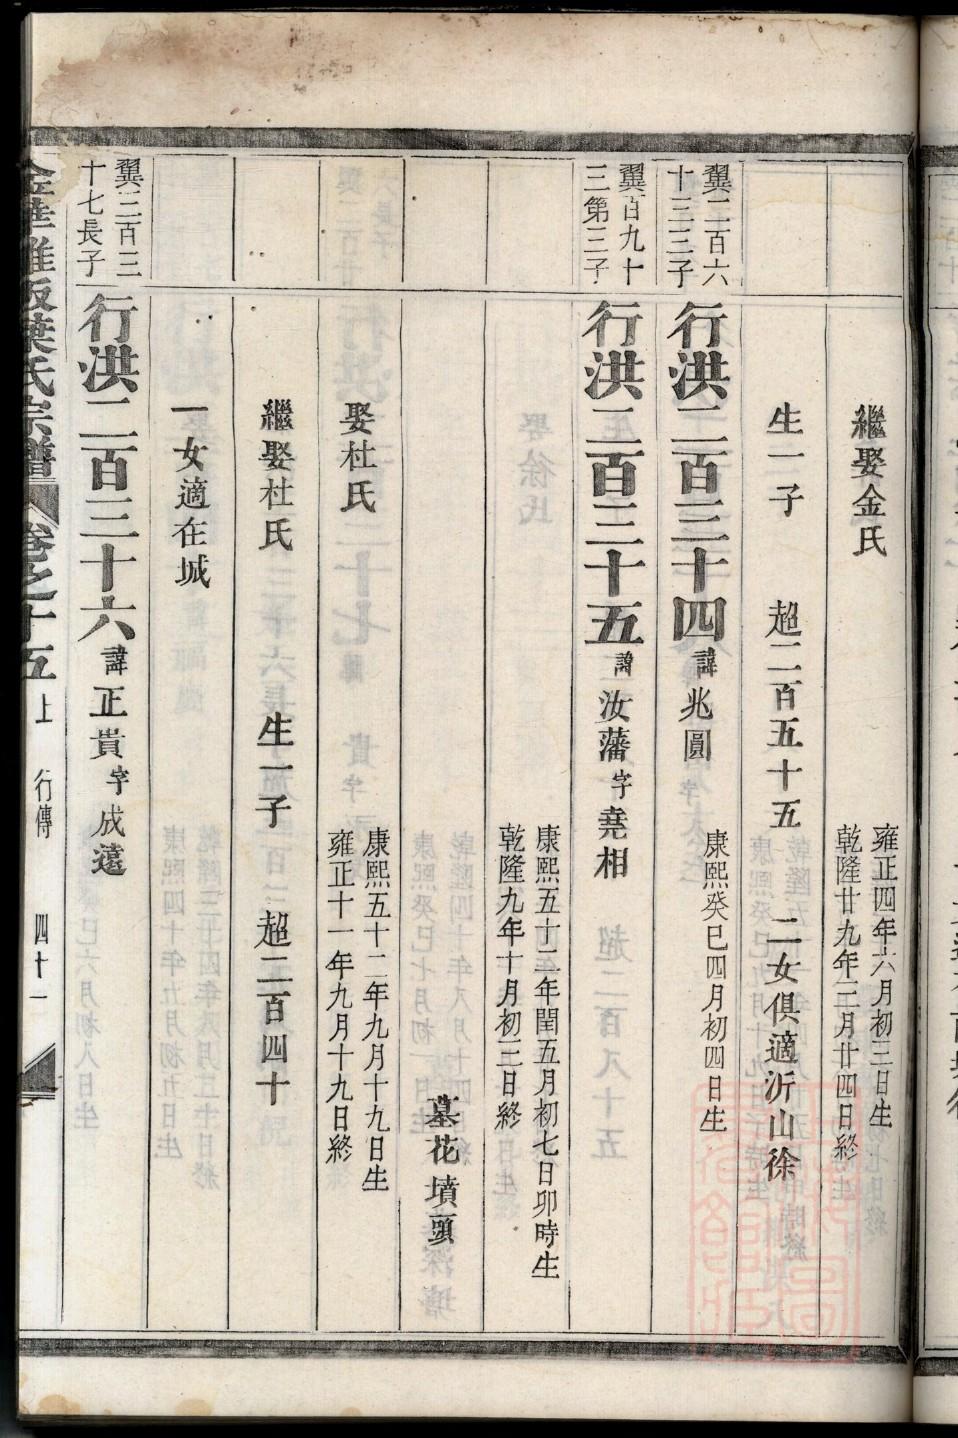 繼娶金氏 雍正四年六月初三日生 乾隆廿九年三月廿四日終
生一子 超二百五十五 二女俱適沂山徐
翼二百六十三三子 行洪二百三十四 諱兆圓 康熙癸巳四月初四日生
翼百九十三第三子 行洪二百三十五 諱汝藩 字堯相
康熙五十二年閏五月初七日卯時生 乾隆九年十月初三日終
墓花墳頭
娶杜氏 康熙五十二年九月十九日生 雍正十一年九月十九日終
繼娶杜氏 生一子 超二百四十
一女適在城
翼三百三十七長子 行洪二百三十六 諱正貴 字成遠
葉氏宗譜 卷之十五 上 行傳 四十一